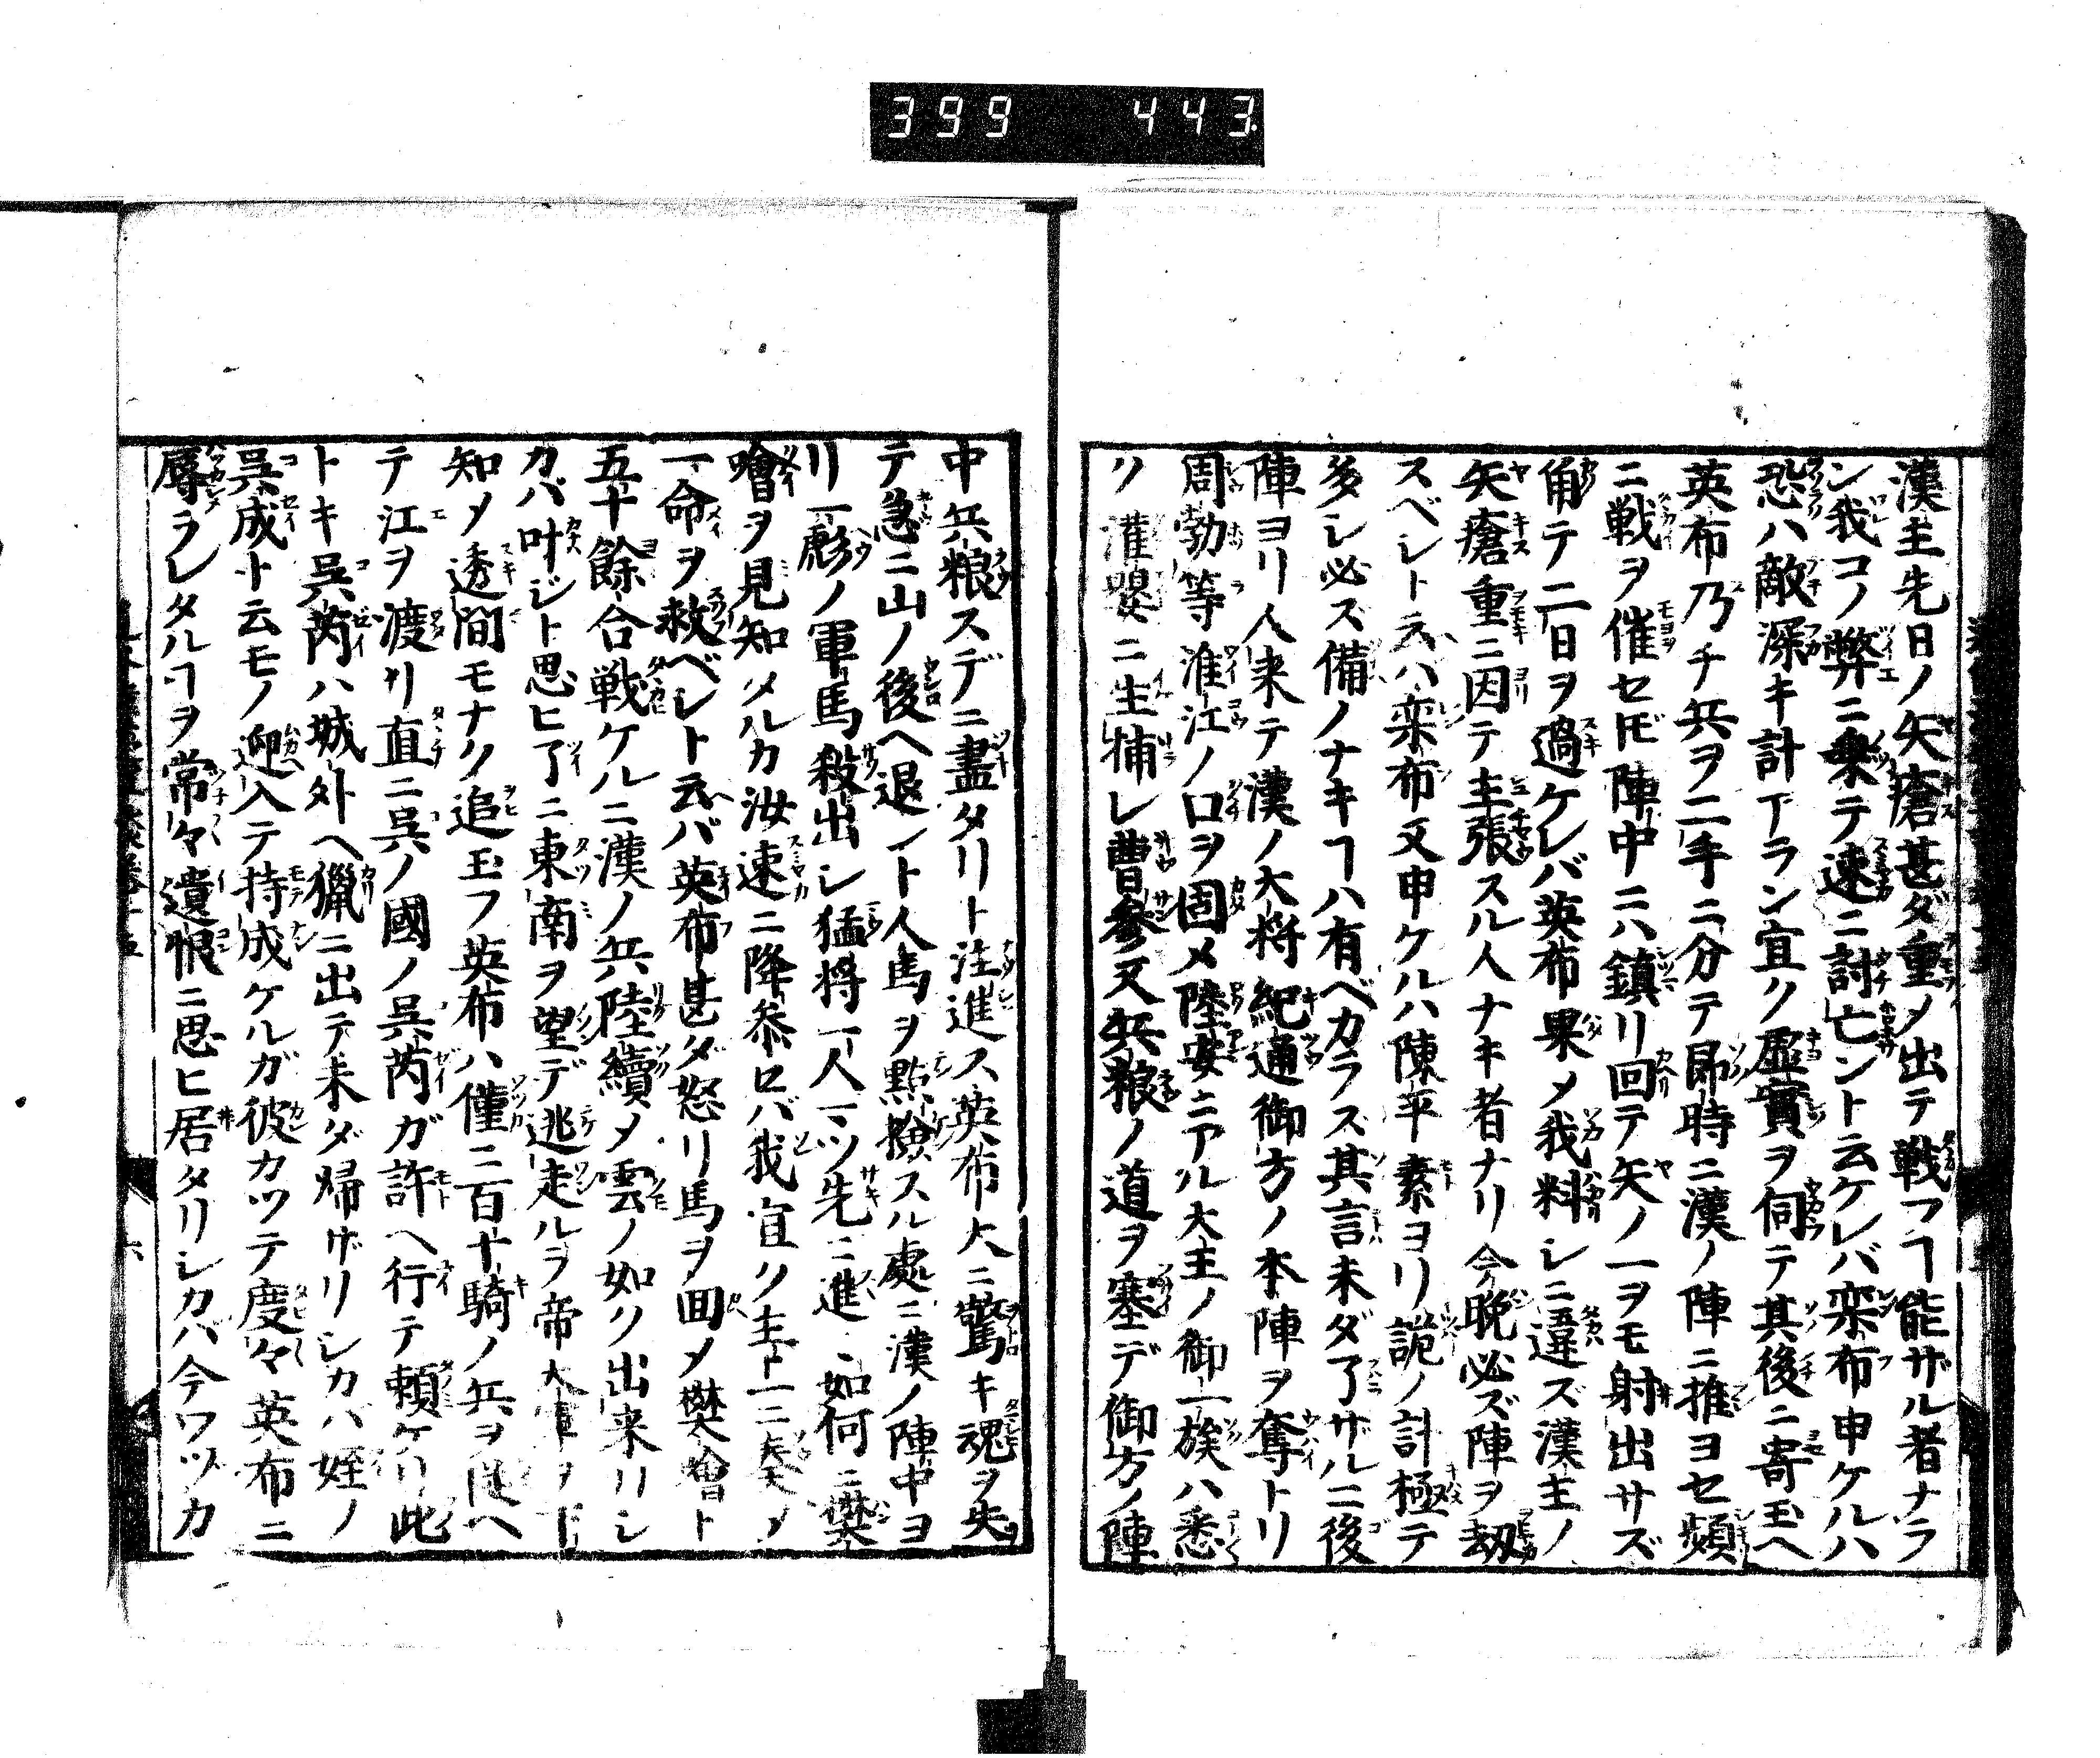 399 443
漢主先日ノ矢瘡甚ダ重メ出テ戦フヿ能ザル者ナラ
ン我コノ弊ニ乗テ速ニ討亡ント云ケレバ栾布申ケルハ
恐ハ敵深キ計アラン宜ク虚實ヲ伺テ其後ニ寄玉ヘ
英布乃チ兵ヲ二手ニ分テ即時ニ漢ノ陣ニ推ヨセ頻
ニ戦ヲ催セ𪜈陣中ニハ鎮リ回テ矢ノ一ヲモ射出サズ
角テ二日ヲ過ケレバ英布果メ我料シニ違ズ漢主ノ
矢瘡重ニ因テ主張スル人ナキ者ナリ今晩必ズ陣ヲ刼
スベシト云ハ栾布又申ケルハ陳平素ヨリ詭ノ計極テ
多シ必ズ備ノナキヿハ有ベカラス其言未ダ了サルニ後
陣ヨリ人来テ漢ノ大将紀通御方ノ本陣ヲ奪トリ
周勃等淮江ノ口ヲ固メ陸安ニアル大主ノ御一族ハ悉
ク灌嬰ニ生捕レ曹参又兵粮ノ道ヲ塞デ御方ノ陣
中兵粮スデニ盡タリト注進ス英布大ニ驚キ魂ヲ失
テ急ニ山ノ後ヘ退ント人馬ヲ點撿スル處ニ漢ノ陣中ヨ
リ一彪ノ軍馬殺出シ猛将一人一ツ先ニ進ミ如何ニ樊
噲ヲ見知メルカ汝速ニ降参セバ我宜ク主ト一ニ奏メ
一命ヲ救ベシト云バ英布甚ダ怒リ馬ヲ回メ樊噲ト
五十餘合戦ケルニ漢ノ兵陸續メ雲ノ如ク出来リシ
カバ叶ジト思ヒ了ニ東南ヲ望デ逃走ルヲ帝大軍ヲ下
知メ透間モナク追玉フ英布ハ僅ニ百十騎ノ兵ヲ従ヘ
テ江ヲ渡リ直ニ呉ノ國ノ呉芮ガ許ヘ行テ頼ケリ此
トキ呉芮ハ城外ヘ獵ニ出テ未ダ帰ザリシカバ姪ノ
呉成ト云モノ迎入テ持成ケルガ彼カツテ度々英布ニ
辱ラレタルヿヲ常々遺恨ニ思ヒ居タリシカバ今ワヅカ